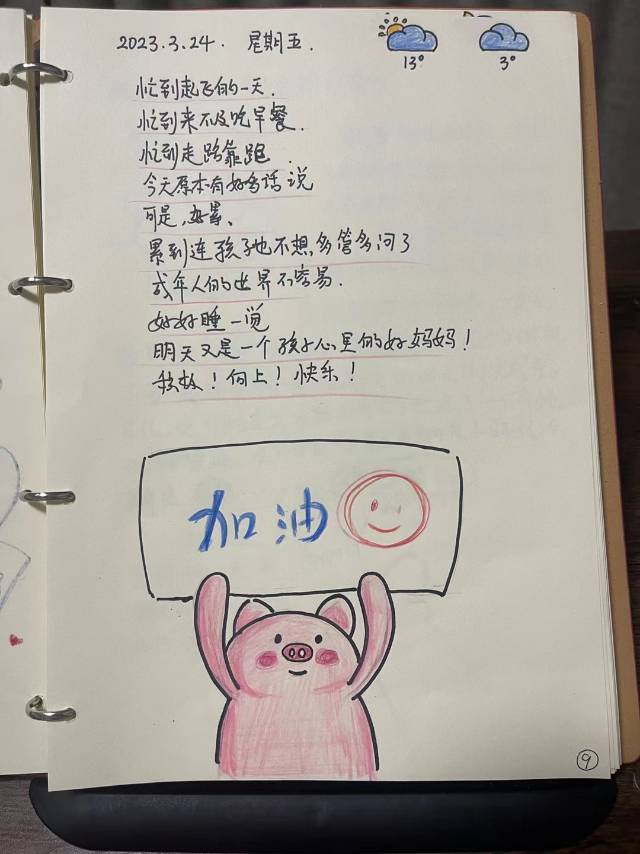 2023.3.24. 星期五.
13°
3°
忙到起飞的一天.
忙到来不及吃早餐.
忙到走路靠跑.
今天原本有好多话说
可是,好累、
累到连孩子也不想多管多问了
成年人的世界不容易.
好好睡一觉
明天又是一个孩子心里的好妈妈!
积极!向上!快乐!
加油
9